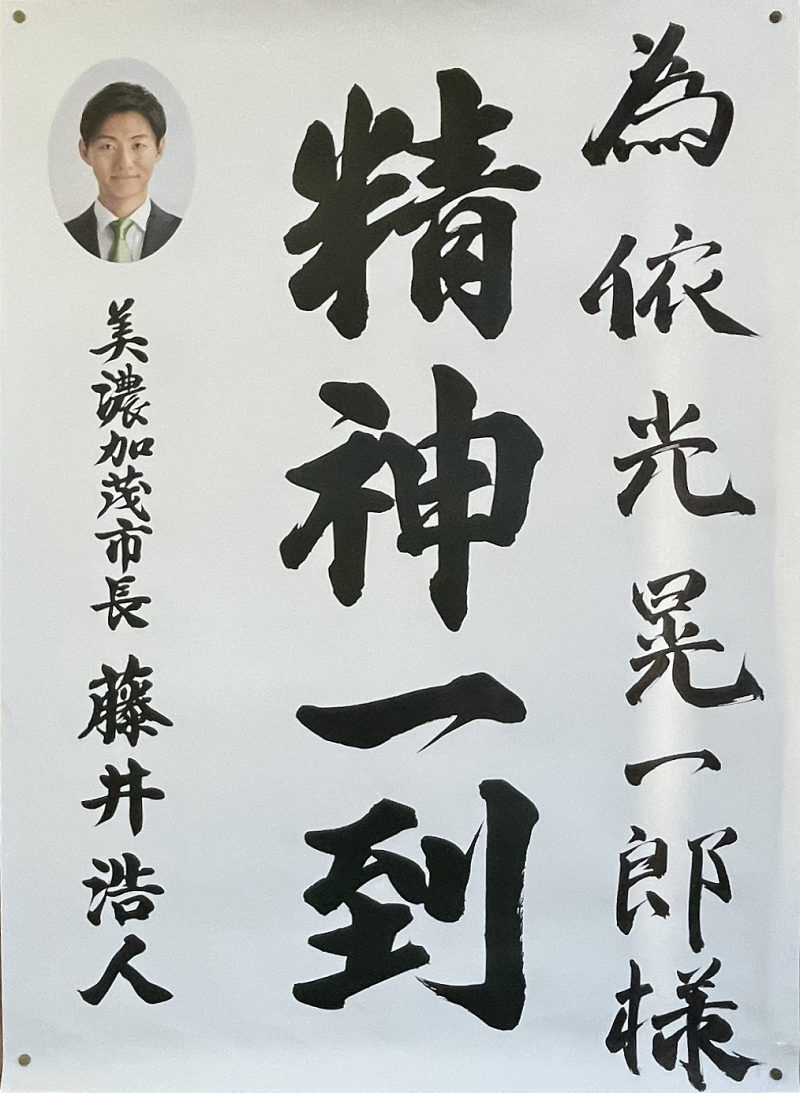 為依光晃一郎様
精神一到
美濃加茂市長 藤井浩人